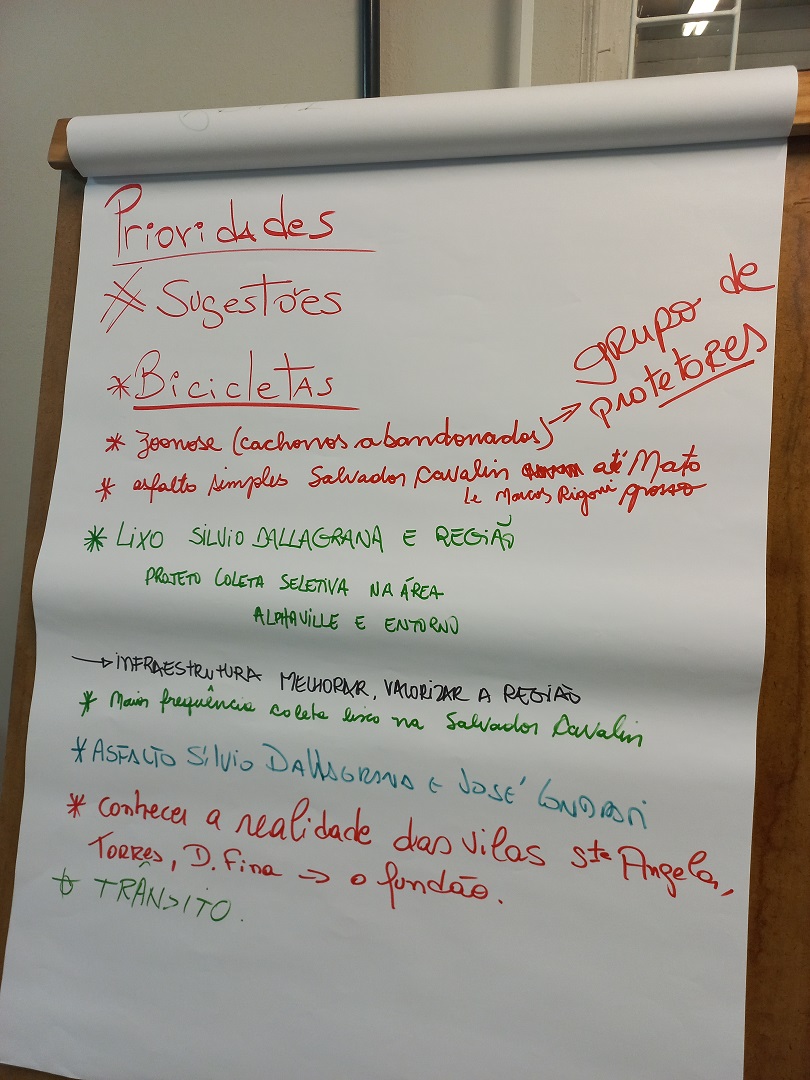 Prioridades
* Sugestões
* Bicicletas
* zoonose (cachorros abandonados) → grupo de
protetores
* asfalto simples Salvador Cavalin até Mato
Le Marcos Rigoni grosso
* LIXO SILVIO DALLAGRANA E REGIÃO
PROJETO COLETA SELETIVA NA ÁREA
ALPHAVILLE E ENTORNO
→ INFRAESTRUTURA MELHORAR, VALORIZAR A REGIÃO
* Maior frequência coleta lixo na Salvador Cavalin
* ASFALTO SILVIO DALLAGRANA E JOSÉ
* conhecer a realidade das vilas Sta Angela,
TORRES, D. Fina → o fundão.
* TRÂNSITO.